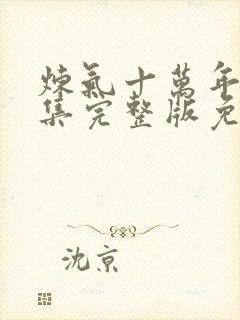 煉氣十萬年
集完整版免
沈京